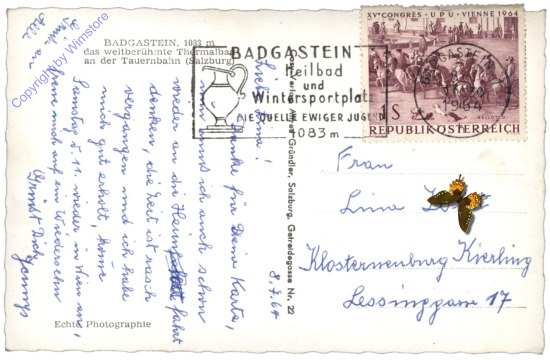 BADGASTEIN, 1083 m
das weltberühmte Thermalbad
an der Tauernbahn (Salzburg)
Copyright by Wimstore
BADGASTEIN
Heilbad
und
Wintersportplatz
DIE QUELLE EWIGER JUGEND
1083 m
XV CONGRÈS · UPU · VIENNE 1964
1S
REPUBLIK ÖSTERREICH
BADGASTEIN
1964
8.7.64
danke für Deine Karte,
muß ich auch schon
wieder an die Heimfahrt
denken, die Zeit ist rasch
vergangen und ich habe
mich gut erholt, komme
Samstag d. 11. wieder in Wien an,
freue mich auf ein Wiedersehn
Grüßt Dich
Gründler, Salzburg, Getreidegasse Nr. 22
Frau
Lina
Klosterneuburg Kierling
Lessinggasse 17
Echte Photographie